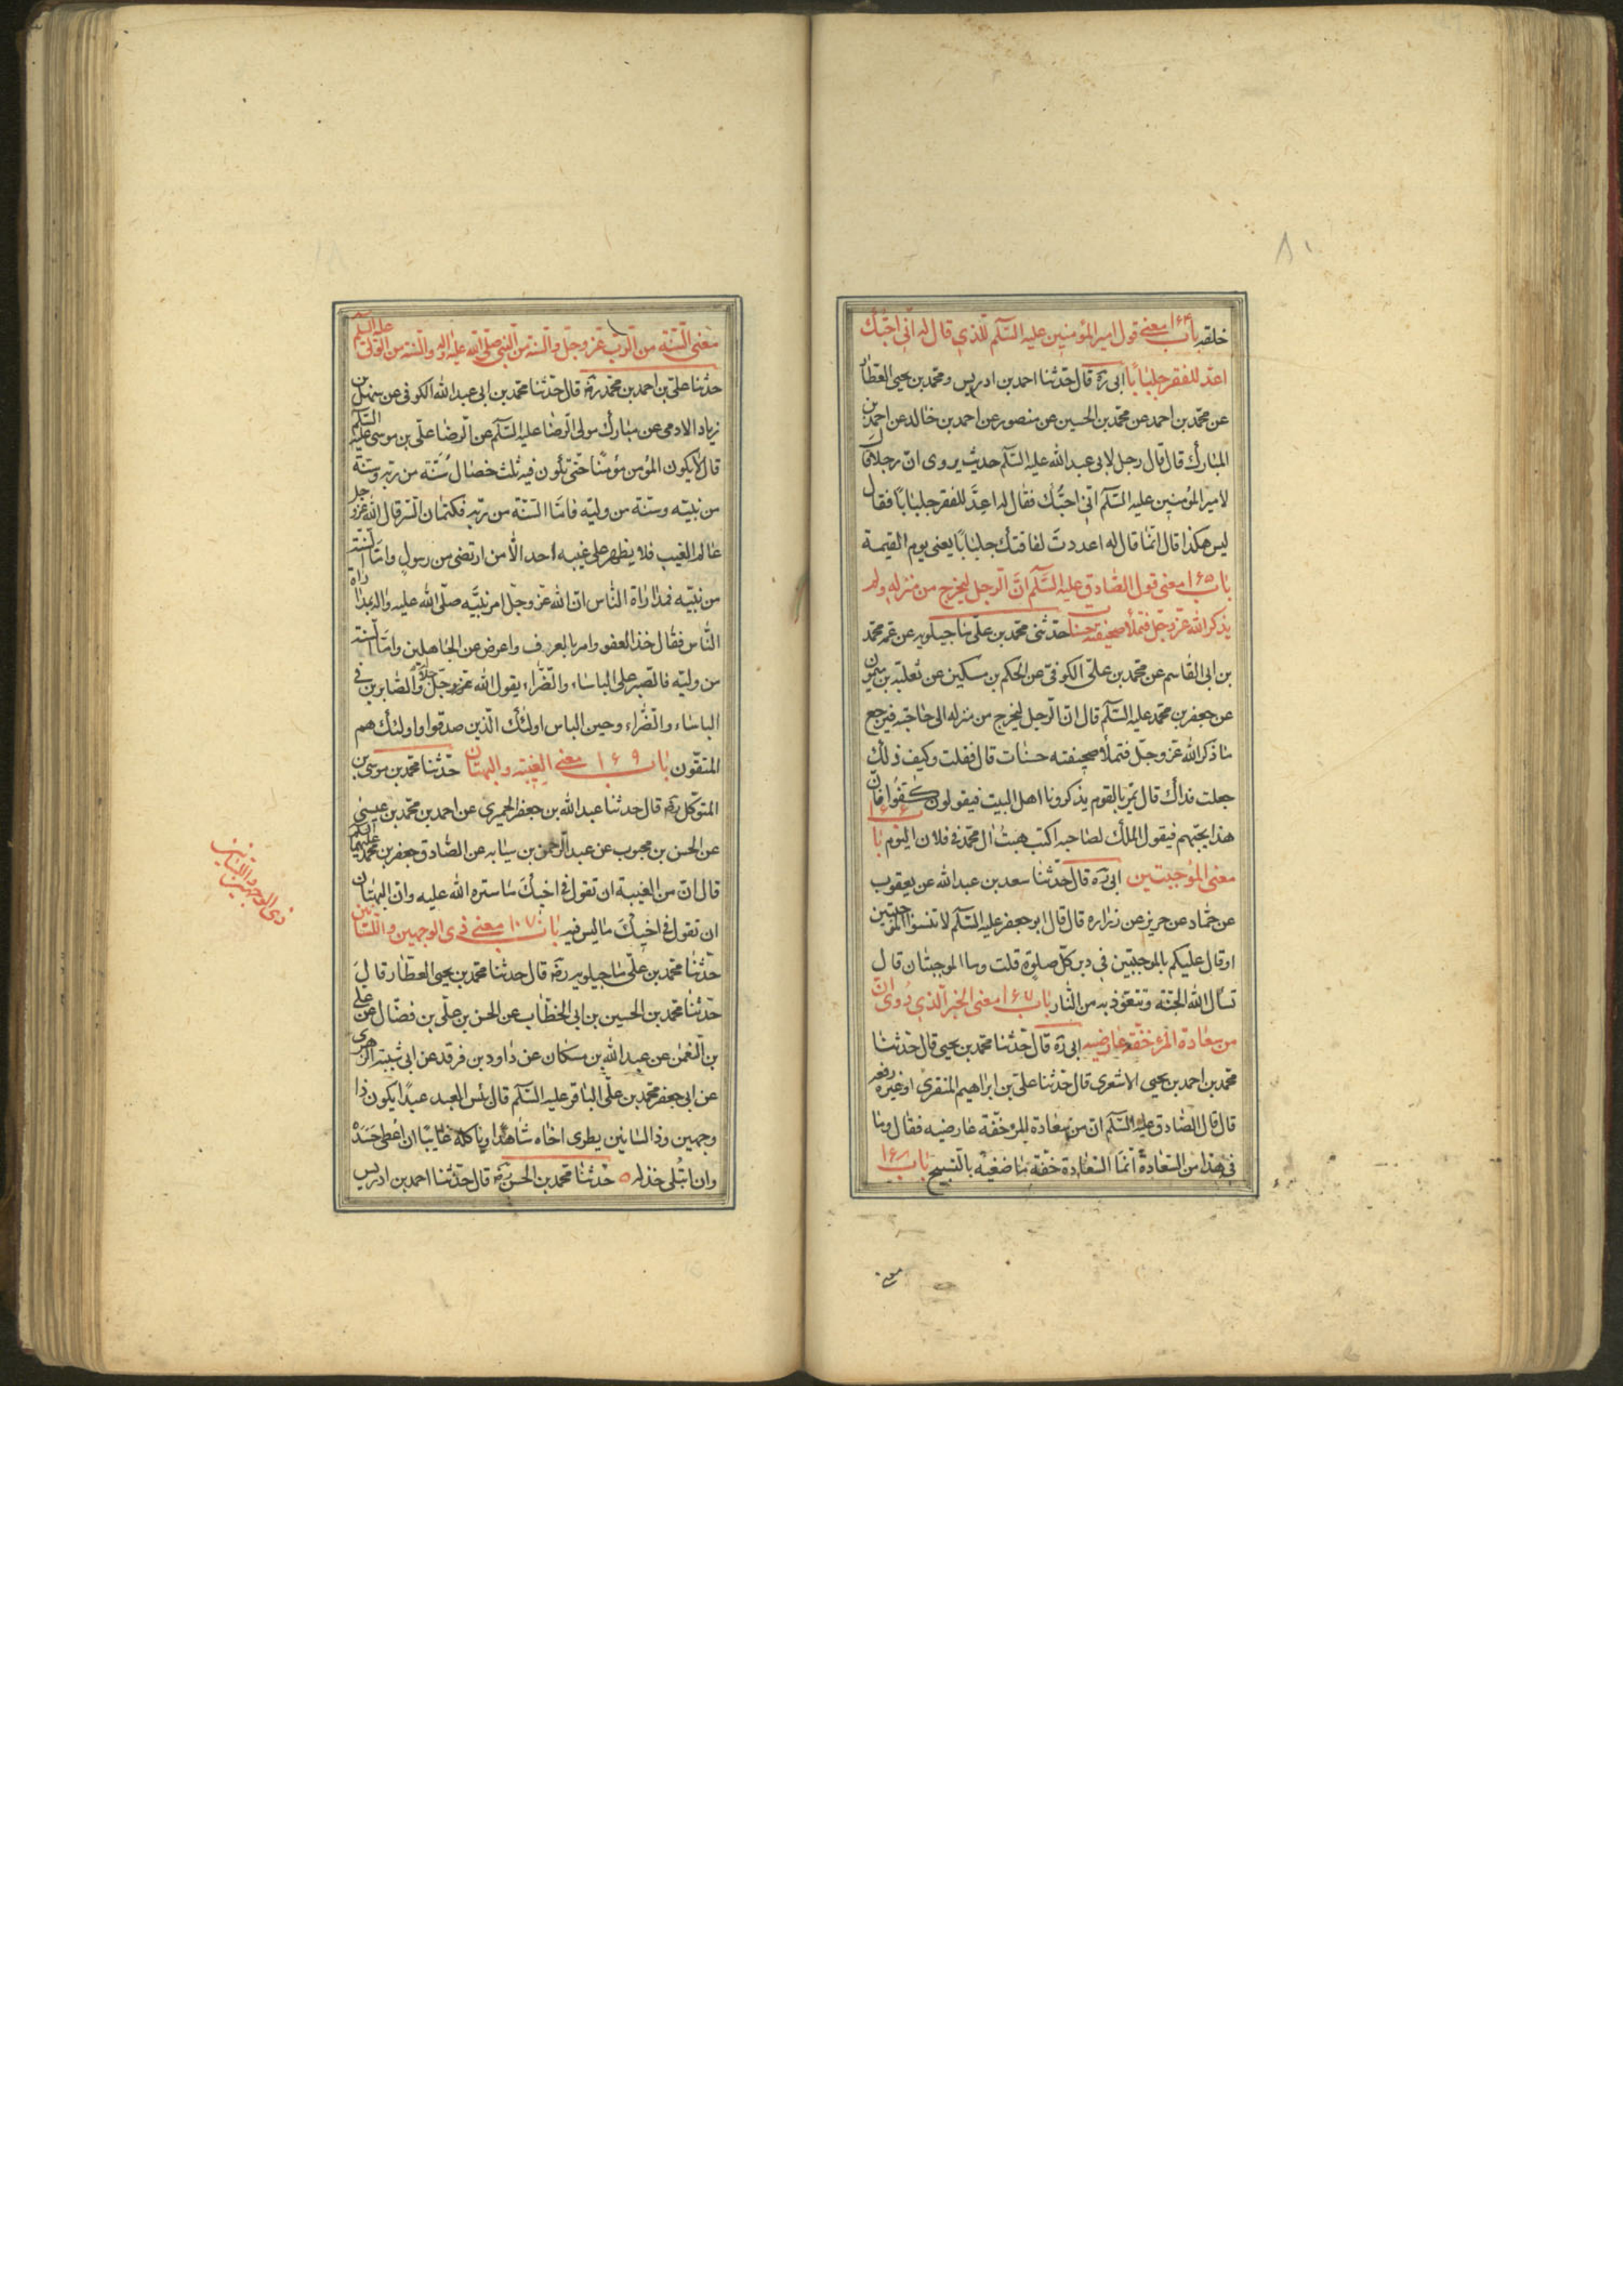 ٨١
خلقه باب ١۶۴ معنى قول امير المؤمنين عليه السّلام للّذي قال له انّى احبّك
اعدّ للفقر جلبابًا ابى ره قال حدّثنا احمد بن ادريس ومحمّد بن يحيى العطّار
عن محمّد بن احمد عن محمّد بن الحسين عن منصور عن احمد بن خالد عن احمد بن
المبارك قال قال رجل لابى عبد الله عليه السّلام حديث يروى انّ رجلا قال
لامير المؤمنين عليه السّلام انّى احبّك فقال له اعدّ للفقر جلبابًا فقال
ليس هكذا قال انّما قال له اعددت لفاقتك جلبابًا يعنى يوم القيمة
باب ١۶۵ معنى قول الصّادق عليه السّلام انّ الرّجل ليخرج من منزله ولم
يذكر الله عزّ وجلّ فتملأ صحيفته حسنات حدّثنى محمّد بن علىّ ماجيلويه عن عمّه محمّد
بن ابى القاسم عن محمّد بن علىّ الكوفىّ عن الحكم بن مسكين عن ثعلبة بن ميمون
عن جعفر بن محمّد عليه السّلام قال انّ الرّجل ليخرج من منزله الى حاجته فيرجع
ما ذكر الله عزّ وجلّ فتملأ صحيفته حسنات قال فقلت وكيف ذلك
جعلت فداك قال يمرّ بالقوم يذكرونا اهل البيت فيقولون كفّوا فانّ
هذا يحبّهم فيقول الملك لصاحبه اكتب هبت ال محمّد فى فلان اليوم باب ١۶۶
معنى الموجبتين ابى ره قال حدّثنا سعد بن عبد الله عن يعقوب
عن حمّاد عن حريز عن زراره قال قال ابو جعفر عليه السّلام لا تنسوا الموجبتين
او قال عليكم بالموجبتين فى دبر كلّ صلوة قلت وما الموجبتان قال
تسأل الله الجنّة وتتعوّذ به من النّار باب ١۶٧ معنى الخبر الّذي روى انّ
من سعادة المرء خفّة عارضيه ابى ره قال حدّثنا محمّد بن يحيى قال حدّثنا
محمّد بن احمد بن يحيى الاشعرى قال حدّثنا علىّ بن ابراهيم المنقرى او غيره رفعه
قال قال الصّادق عليه السّلام انّ من سعادة المرء خفّة عارضيه فقال وما
فى هذا من السّعادة انّما السّعادة خفّة ماضغيه بالتّسبيح باب ١۶٨
معنى
معنى السّنّة من الرّبّ عزّ وجلّ والسّنّة من النّبى صلّى الله عليه وآله والسّنّة من الولىّ عليه السّلام
حدّثنا علىّ بن احمد بن محمّد ره قال حدّثنا محمّد بن ابى عبد الله الكوفى عن سهل بن
زياد الادمى عن مبارك مولى الرّضا عليه السّلام عن الرّضا علىّ بن موسى عليه السّلام
قال لا يكون المؤمن مؤمنًا حتّى يكون فيه ثلث خصال سنّة من ربّه وسنّة
من نبيّه وسنّة من وليّه فامّا السّنّة من ربّه فكتمان السّر قال الله عزّ وجلّ
عالم الغيب فلا يظهر على غيبه احدا الّا من ارتضى من رسول وامّا السّنّة
من نبيّه فمداراة النّاس انّ الله عزّ وجلّ امر نبيّه صلّى الله عليه واله بمداراة
النّاس فقال خذ العفو وامر بالعرف واعرض عن الجاهلين وامّا السّنّة
من وليّه فالصّبر على الباساء والضّرّاء يقول الله عزّ وجلّ والصّابرين فى
الباساء والضّرّاء وحين الباس اولئك الّذين صدقوا واولئك هم
المتقّون باب ١۶٩ معنى الغيبة والبهتان حدّثنا محمّد بن موسى بن
المتوكّل ره قال حدثنا عبد الله بن جعفر الحميرى عن احمد بن محمّد بن عيسى
عن الحسن بن محبوب عن عبد الرّحمن بن سيابه عن الصّادق جعفر بن محمّد عليهما السّلام
قال انّ من الغيبة ان تقول فى اخيك ما ستره الله عليه وانّ البهتان
ان تقول فى اخيك ما ليس فيه باب ١٠٧ معنى ذى الوجهين واللّسانين
حدّثنا محمّد بن علىّ ماجيلويه ره قال حدثنا محمّد بن يحيى العطّار قال
حدّثنا محمّد بن الحسين بن ابى الخطّاب عن الحسن بن علىّ بن فضّال عن على
بن النّعمن عن عبد الله بن مسكان عن داود بن فرقد عن ابى شيبة الزهرى
عن ابى جعفر محمّد بن علىّ الباقر عليه السّلام قال بئس العبد عبدًا يكون ذا
وجهين وذا لسانين يطرى اخاه شاهدًا وياكله غائبًا ان اعطى حسده
وان ابتلى خذله حدّثنا محمّد بن الحسن ره قال حدّثنا احمد بن ادريس
ذى الوجهين واللسانين